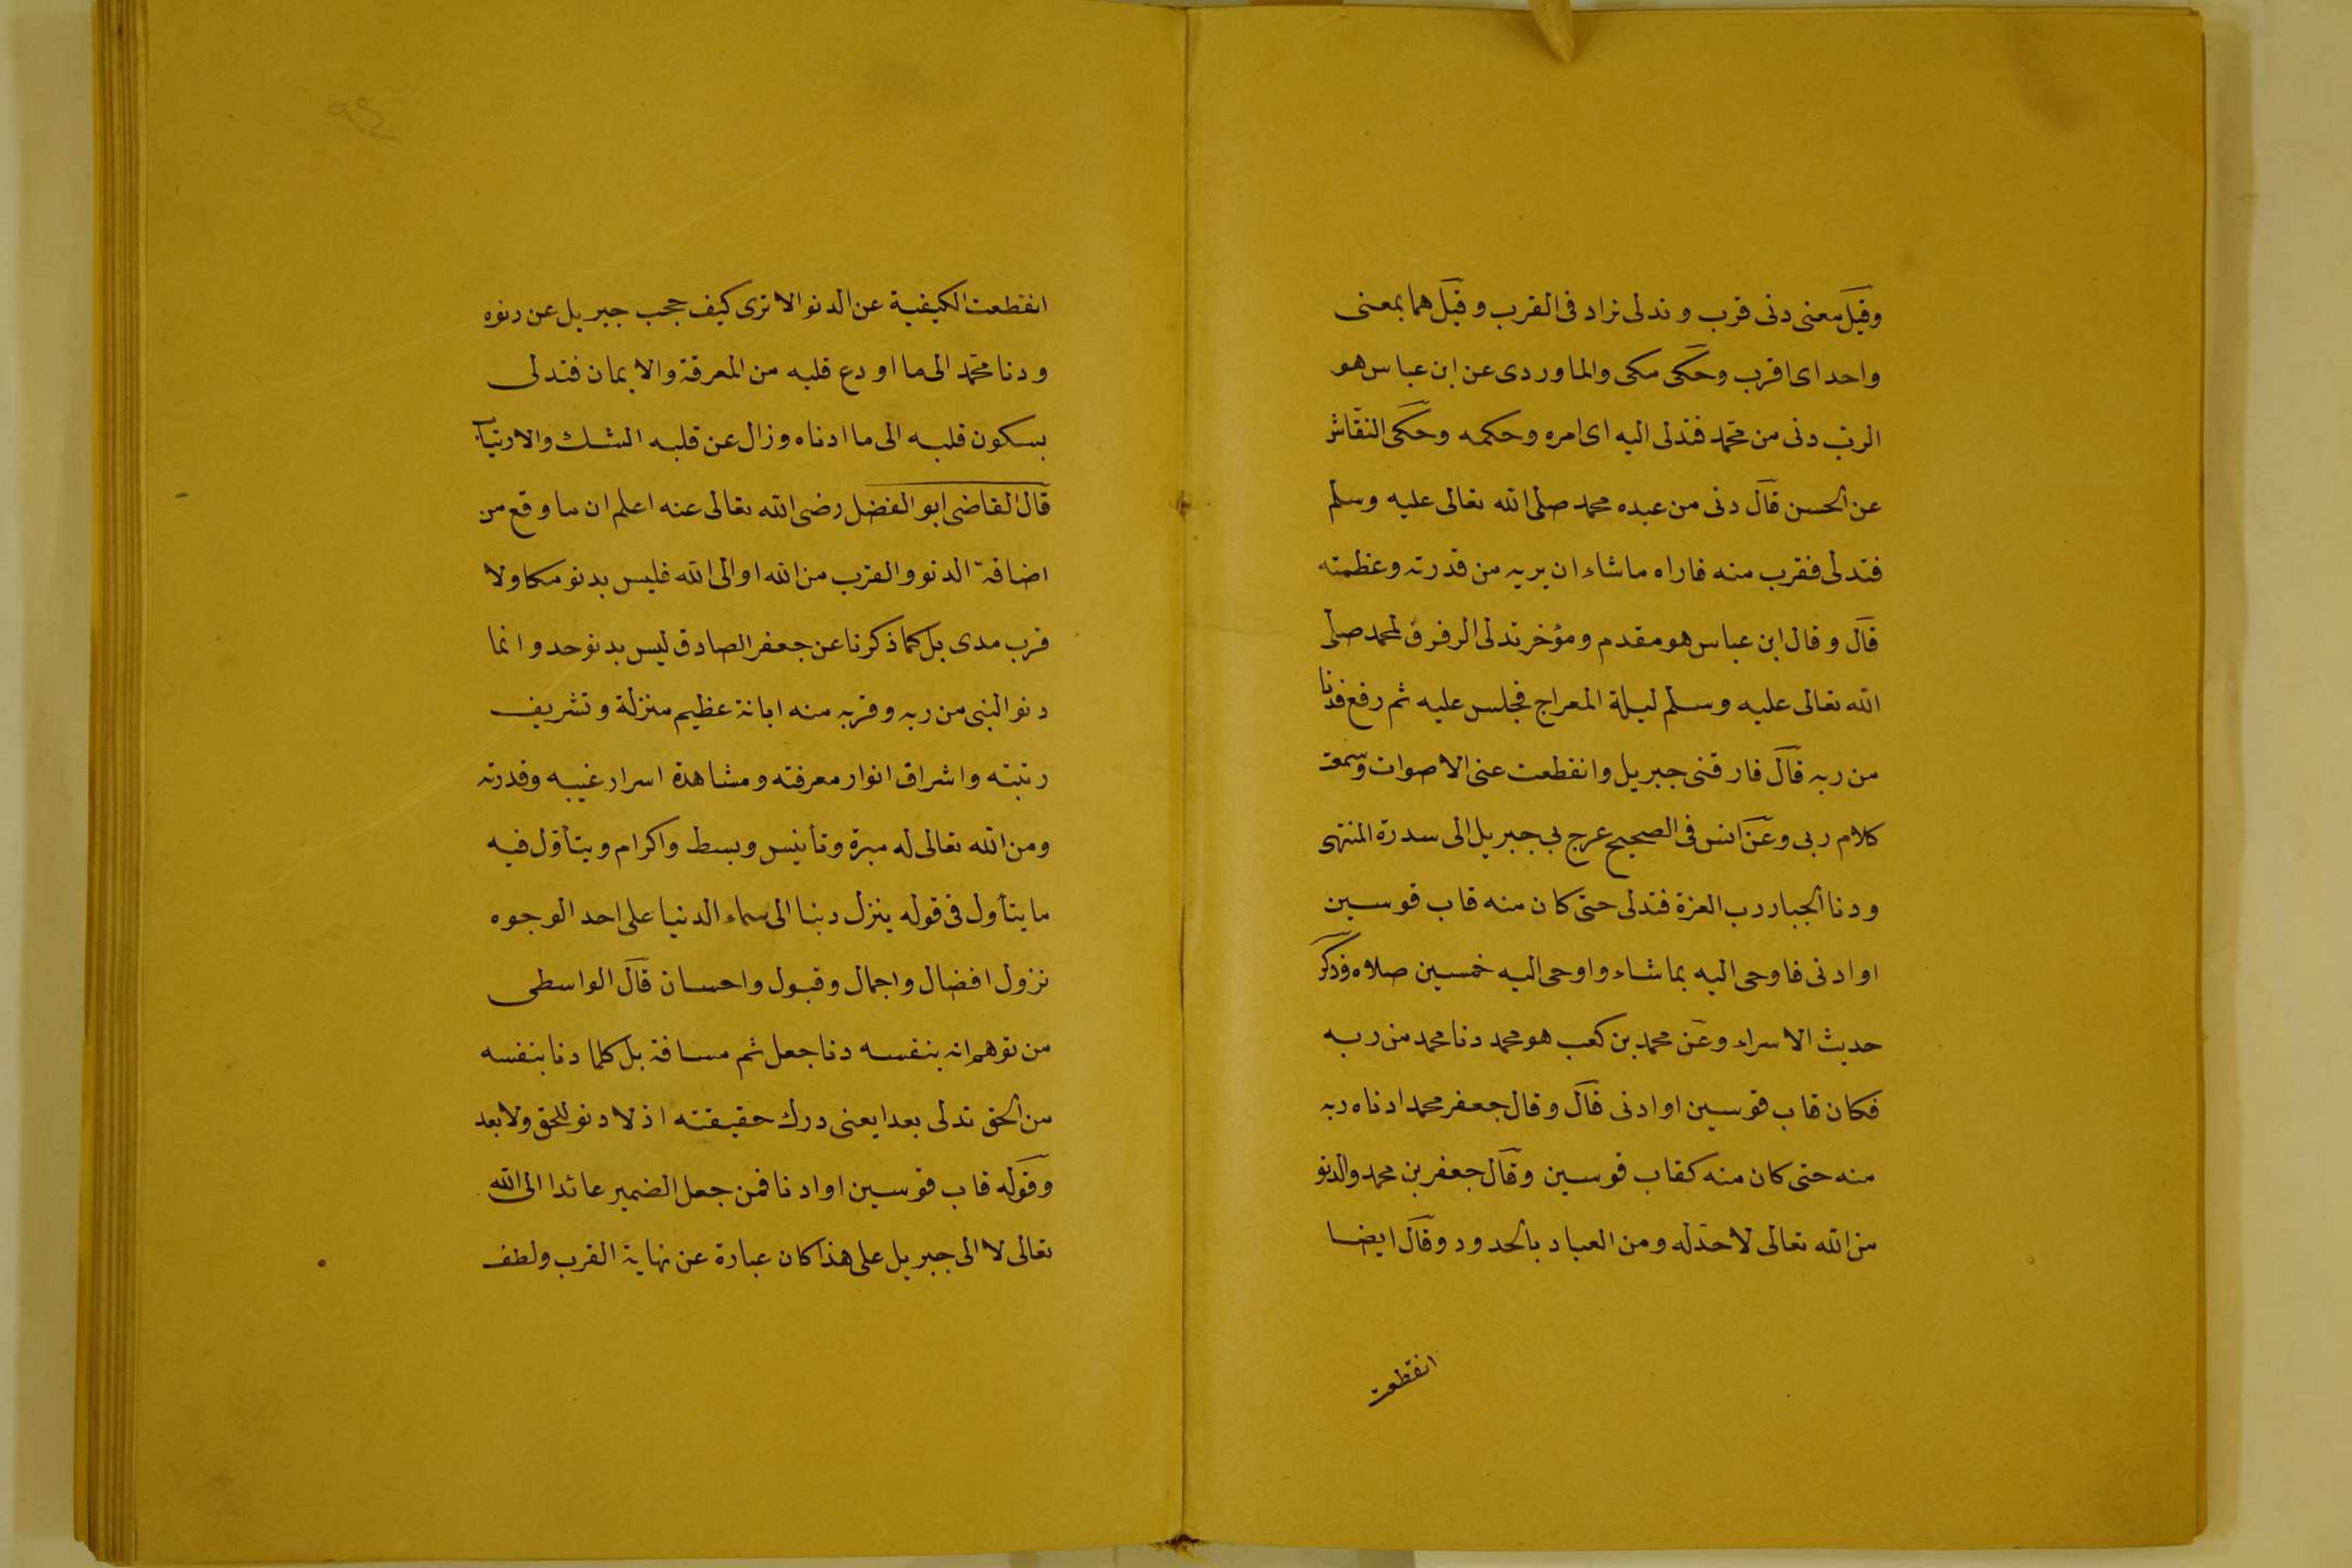 وقيل معنى دنى قرب وتدلى زاد فى القرب وقيل هما بمعنى
واحد اى اقرب وحكى مكى والماوردى عن ابن عباس هو
الرب دنى من محمد فتدلى اليه اى امره وحكمه وحكى النقاش
عن الحسن قال دنى من عبده محمد صلى الله تعالى عليه وسلم
فتدلى فقرب منه فاراه ما شاء ان يريه من قدرته وعظمته
قال وقال ابن عباس هو مقدم ومؤخر تدلى الرفرف لمحمد صلى
الله تعالى عليه وسلم ليلة المعراج فجلس عليه ثم رفع فدنا
من ربه قال فارقنى جبريل وانقطعت عنى الاصوات وسمعت
كلام ربى وعن انس فى الصحيح عرج بى جبريل الى سدرة المنتهى
ودنا الجبار رب العزة فتدلى حتى كان منه قاب قوسين
او ادنى فاوحى اليه بما شاء واوحى اليه خمسين صلاه وذكر
حديث الاسراء وعن محمد بن كعب هو محمد دنا محمد من ربه
فكان قاب قوسين او ادنى قال وقال جعفر محمد ادناه ربه
منه حتى كان منه كقاب قوسين وقال جعفر بن محمد والدنو
من الله تعالى لا حد له ومن العباد بالحدود وقال ايضا
انقطعت
انقطعت الكيفية عن الدنو الا ترى كيف حجب جبريل عن دنوه
ودنا محمد الى ما اودع قلبه من المعرفة والايمان فتدلى
بسكون قلبه الى ما ادناه وزال عن قلبه الشك والارتياب
قال القاضى ابو الفضل رضى الله تعالى عنه اعلم ان ما وقع من
اضافة الدنو والقرب من الله او الى الله فليس بدنو مكا ولا
قرب مدى بل كما ذكرنا عن جعفر الصادق ليس بدنو حد وانما
دنو النبى من ربه وقربه منه ابانة عظيم منزلة وتشريف
رتبته واشراق انوار معرفته ومشاهدة اسرار غيبه وقدرته
ومن الله تعالى له مبرة وتأنيس وبسط واكرام ويتأول فيه
ما يتأول فى قوله ينزل ربنا الى سماء الدنيا على احد الوجوه
نزول افضال واجمال وقبول واحسان قال الواسطى
من توهم انه بنفسه دنا جعل ثم مسافة بل كلما دنا بنفسه
من الحق تدلى بعدا يعنى درك حقيقته اذ لا دنو للحق ولا بعد
وقوله قاب قوسين او ادنا فمن جعل الضمير عائدا الى الله
تعالى لا الى جبريل على هذا كان عبارة عن نهاية القرب ولطف